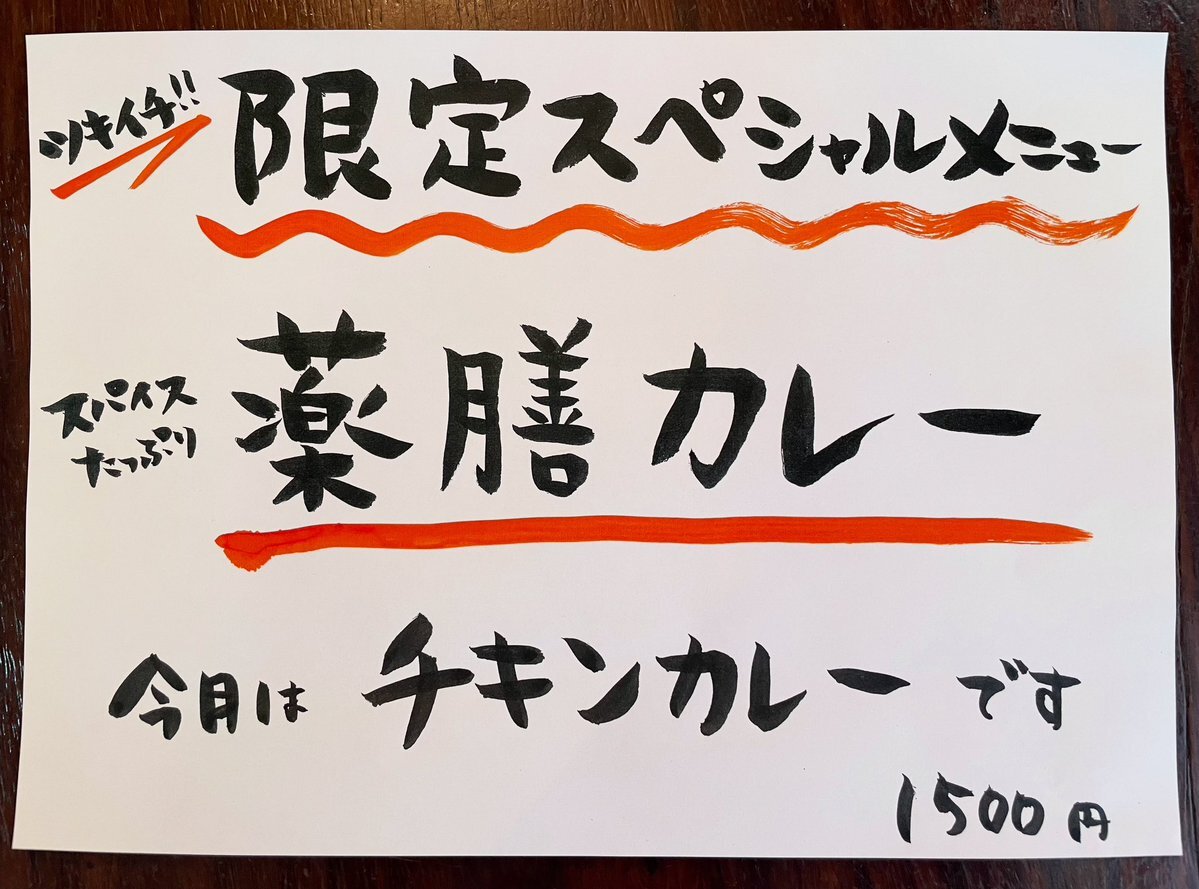 ツキイチ!!
限定スペシャルメニュー
スパイス
たっぷり
薬膳カレー
今月は チキンカレー です
1500円